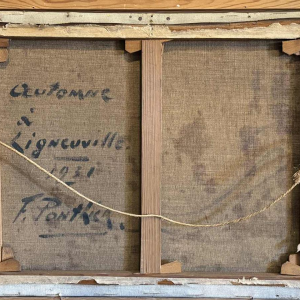 Automne
à
Ligneuville.
1931
F. Ponthier